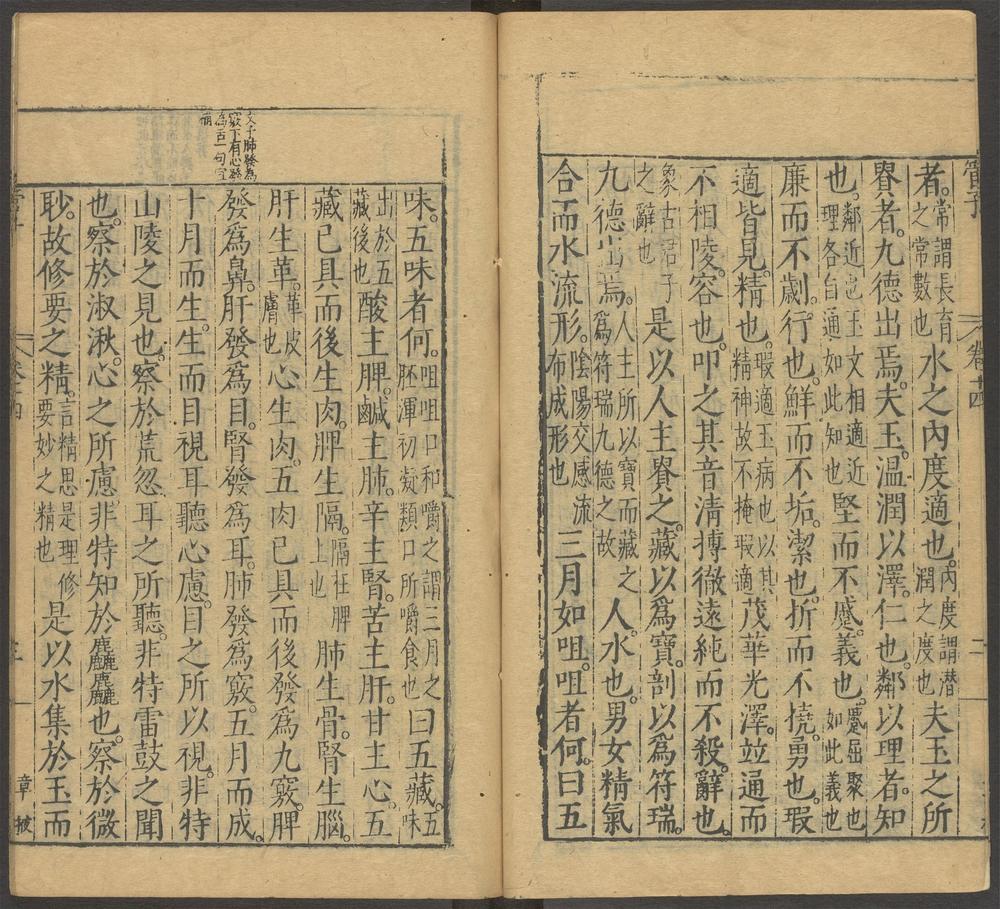 管子 卷十四 二
者。常謂長育之常數也水之內度適也。內度謂潛潤之度也夫玉之所
貴者。九德出焉。夫玉。溫潤以澤。仁也。鄰以理者。知
也。鄰近也玉文相適近理各自通如此知也堅而不蹙。義也。蹙屈聚也如此義也
廉而不劌。行也。鮮而不垢。潔也。折而不撓。勇也。瑕
適皆見。精也。瑕適玉病也以其精神故不掩瑕適茂華光澤。並通而
不相陵。容也。叩之其音清摶徹遠純而不殺。辭也。
象古君子之辭也是以人主貴之。藏以爲寶。剖以爲符瑞。
九德出焉。人主所以寶而藏之爲符瑞九德之故人。水也。男女精氣
合而水流形。陰陽交感流布成形也三月如咀。咀者何。曰五
文子肺發為
竅下有心發
為舌一句宜
補
味。五味者何。咀咀口和嚼之謂三月之胚渾初凝類口所嚼食也曰五藏。五味
出於五藏後也酸主脾。鹹主肺。辛主腎。苦主肝。甘主心。五
藏已具而後生肉。脾生隔。隔在脾上也肺生骨。腎生腦。
肝生革。革皮膚也心生肉。五肉已具而後發爲九竅。脾
發爲鼻。肝發爲目。腎發爲耳。肺發爲竅。五月而成。
十月而生。生而目視耳聽心慮。目之所以視。非特
山陵之見也。察於荒忽。耳之所聽。非特雷鼓之聞
也。察於淑湫。心之所慮。非特知於麤麤也。察於微
眇。故修要之精。言精思是理修要妙之精也是以水集於玉而